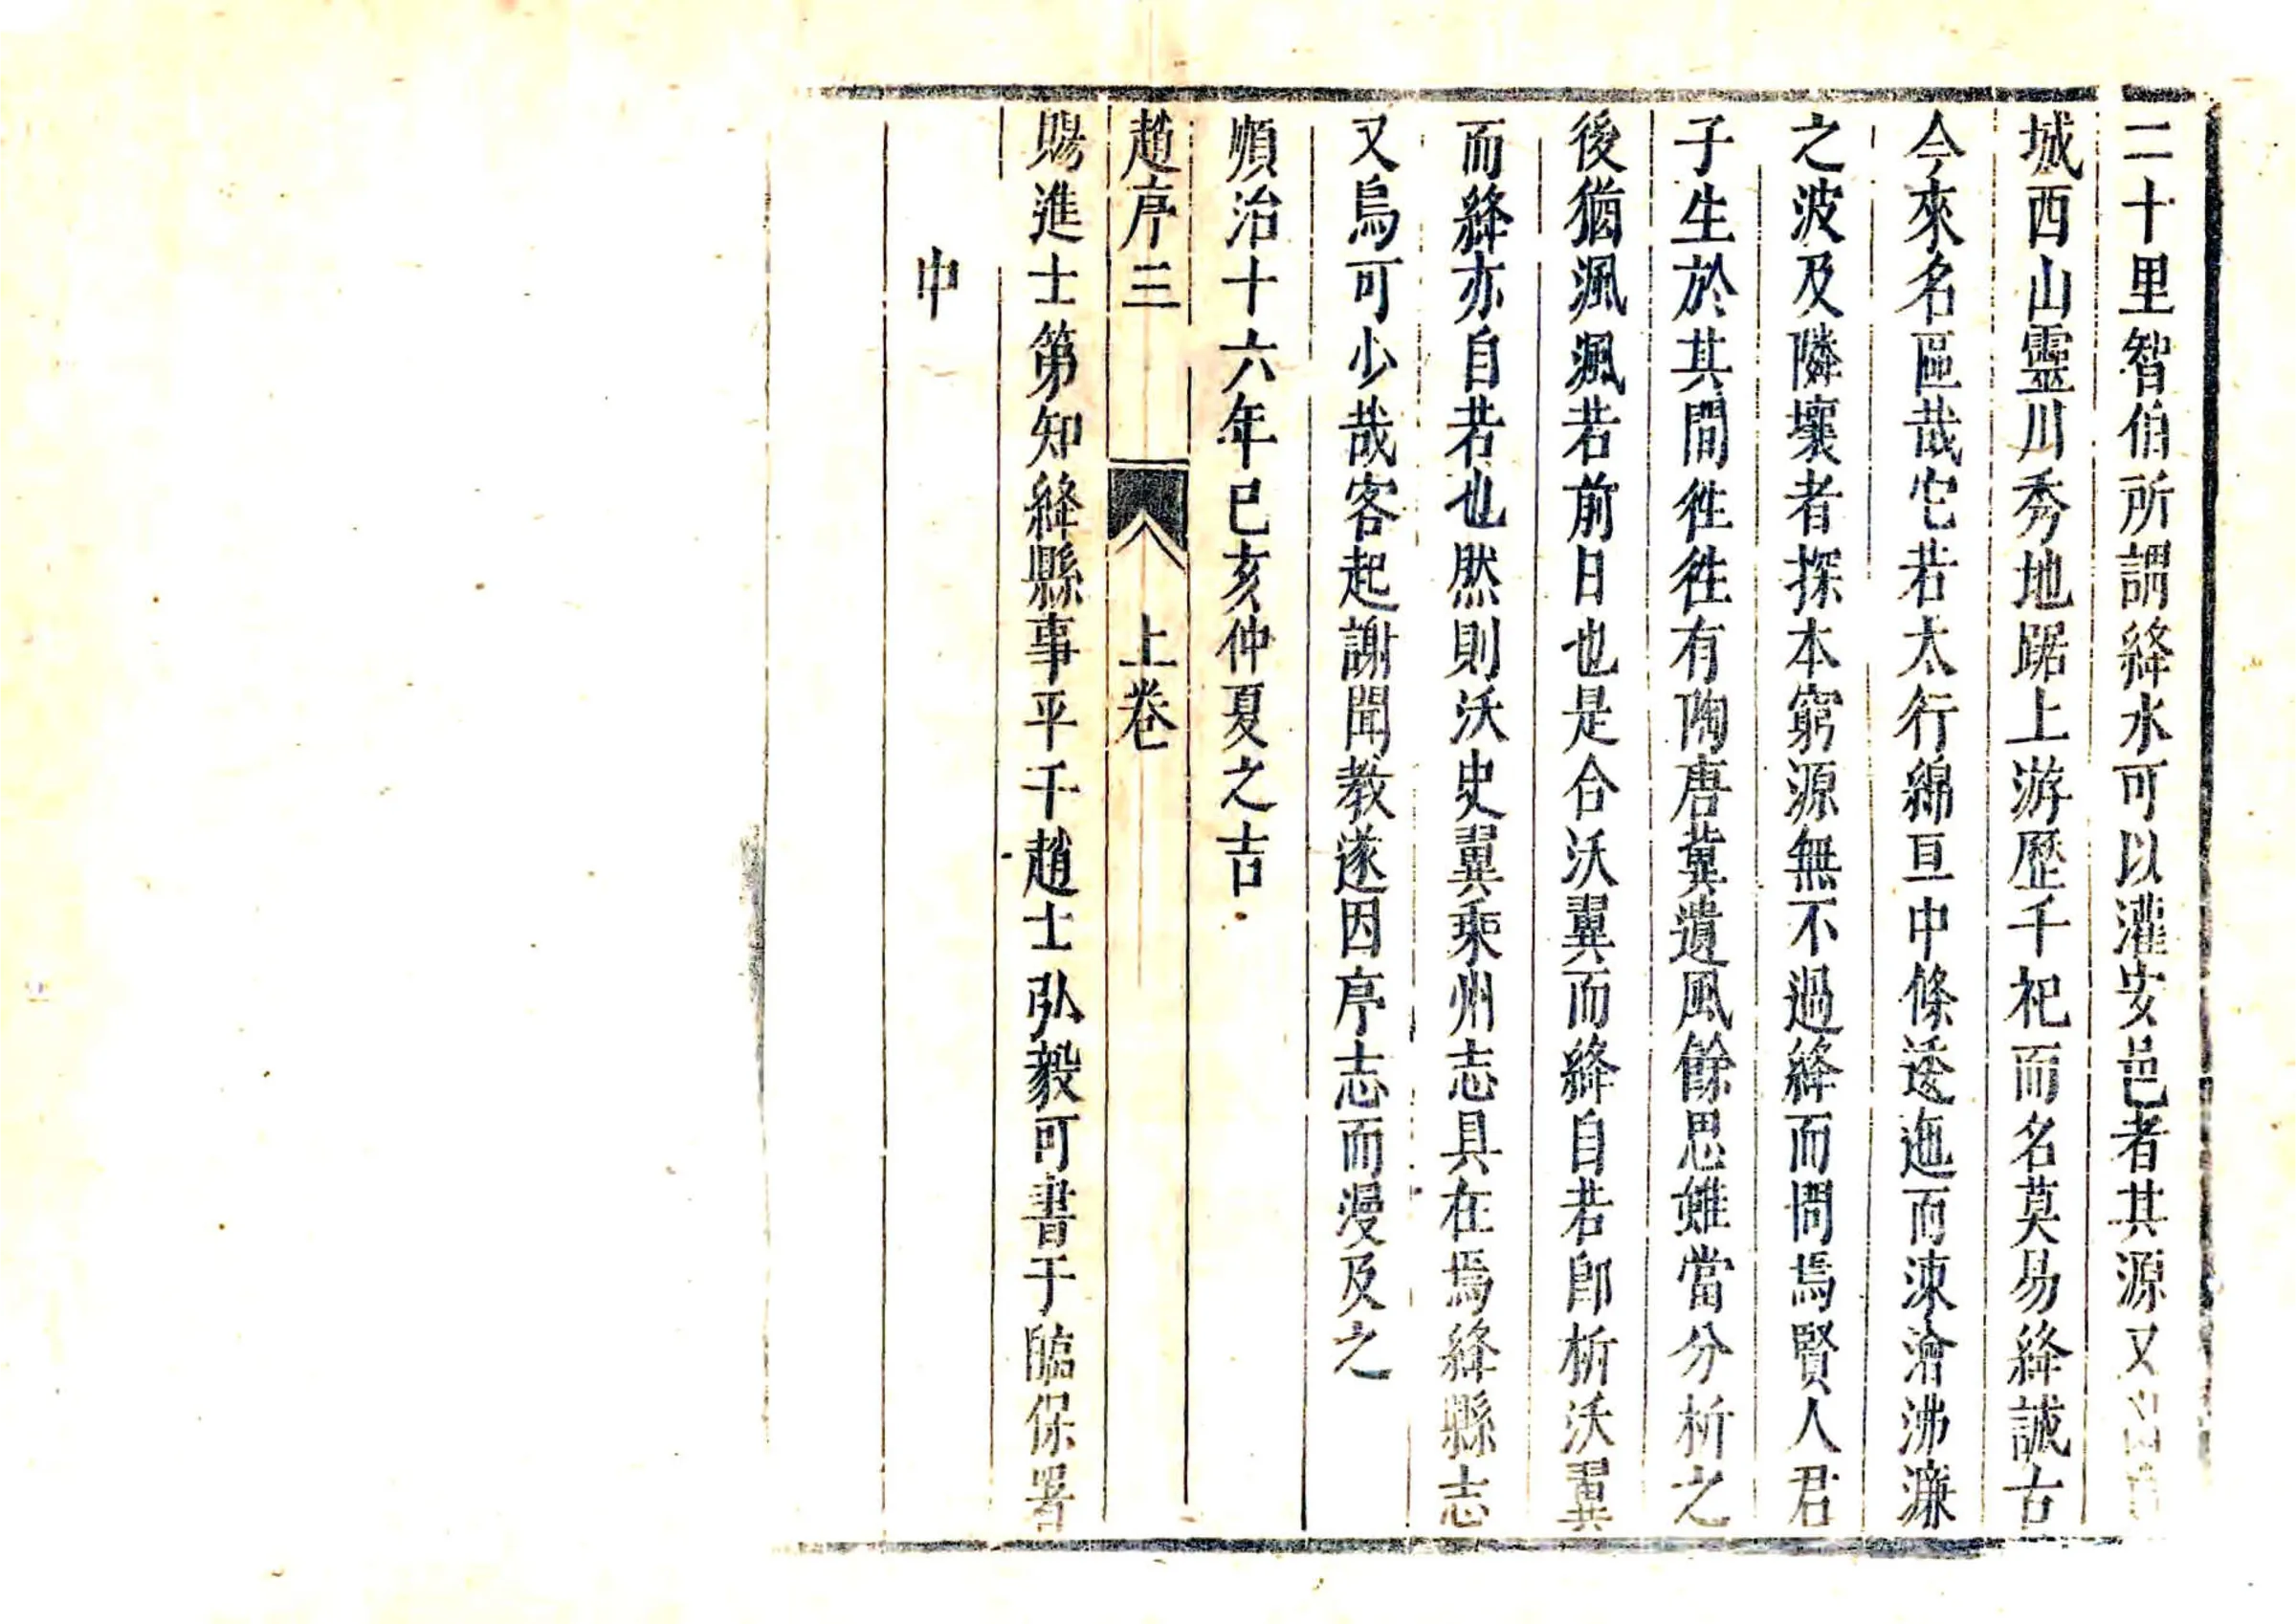 二十里智伯所謂絳水可以灌安邑者其源又
城西山靈川秀地踞上游歷千祀而名莫易絳誠古
今來名區哉它若太行綿亘中條逶迤而涑澮沸濂
之波及隣壤者探本窮源無不過絳而問焉賢人君
子生於其間徃徃有陶唐蓂遺風餘思雖當分析之
後猶渢渢若前日也是合沃翼而絳自若卽析沃翼
而絳亦自若也然則沃史翼乘州志具在焉絳縣志
又烏可少哉客起謝聞教遂因序志而漫及之
順治十六年巳亥仲夏之吉
趙序三 上卷
賜進士第知絳縣事平千趙士弘毅可書于臨保署
中